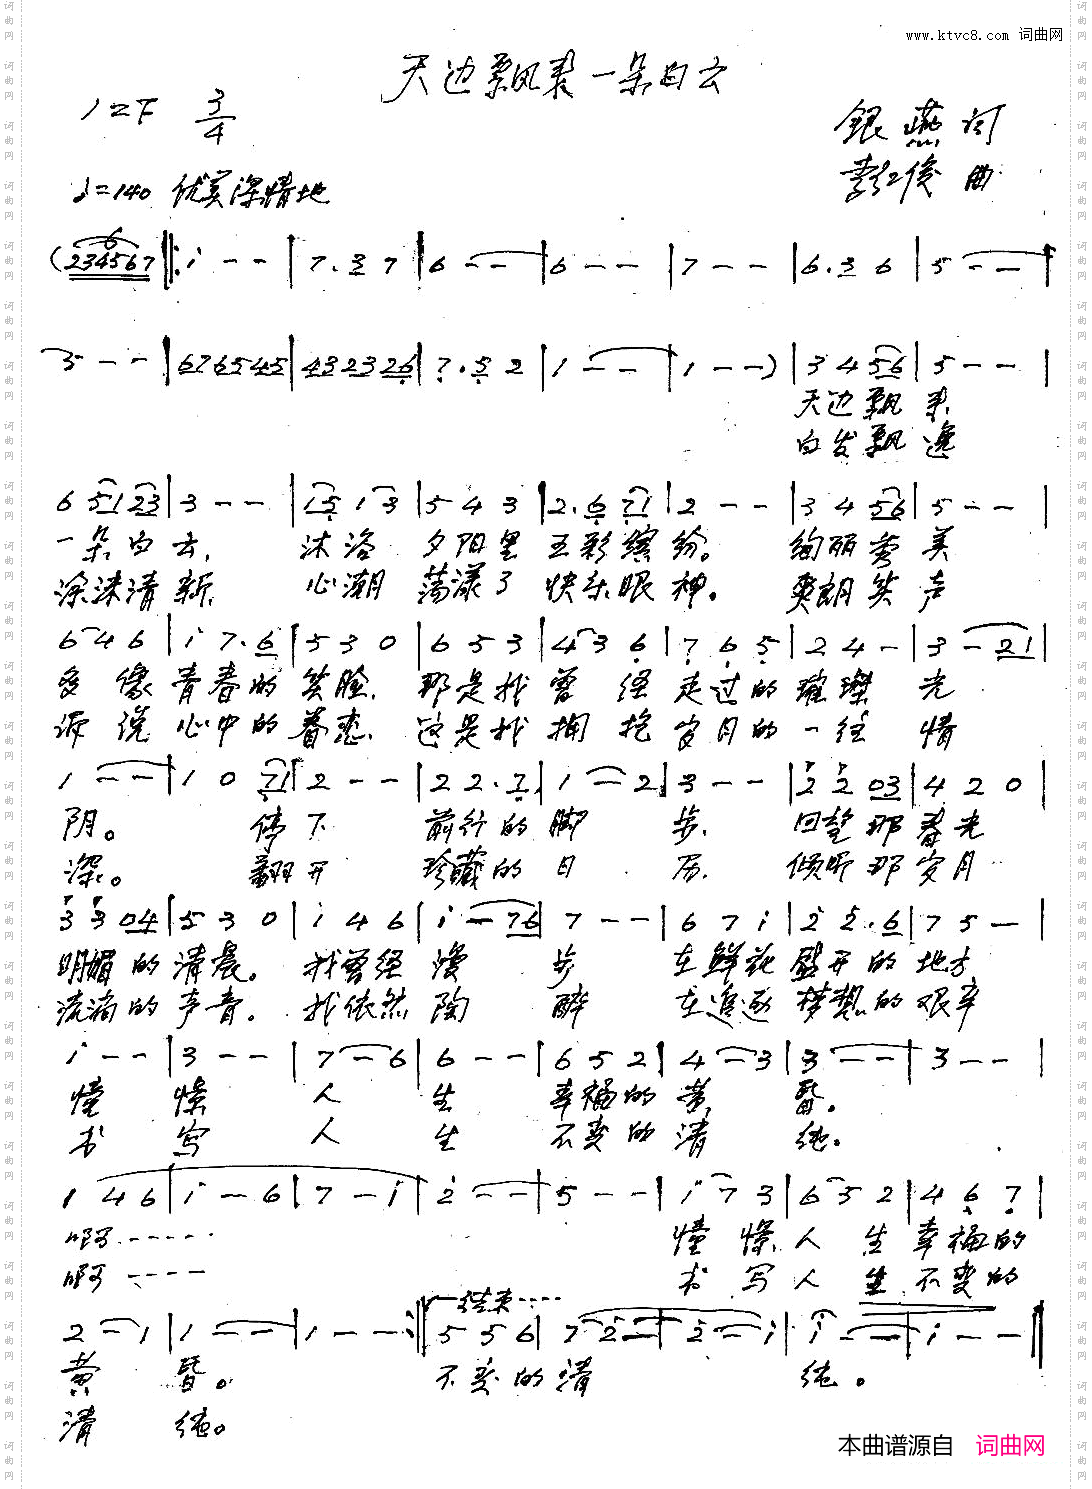 www.ktvc8.com 词曲网
天边飘来一朵白云
1=F 3/4
银燕 词
♩=140 优美深情地
李红俊 曲
6
(234567 ‖: i - - | 7.3 7 | 6 - - | 6 - - | 7 - - | 6.3 6 | 5 - - |
5 - - | 676545 | 432326 | 7.5 2 | 1 - - | 1 - - ) | 3 4 56 | 5 - - |
天边飘来
白发飘逸
6 5123 | 3 - - | 15 1 3 | 5 4 3 | 2.6 71 | 2 - - | 3 4 56 | 5 - - |
一朵白云, 沐浴 夕阳里 五彩缤纷。 绚丽秀美
涂沫清新, 心潮 荡漾了 快乐眼神。 爽朗笑声
6 4 6 | i 7.6 | 5 3 0 | 6 5 3 | 4 3 6 | 7 6 5 | 2 4 - | 3 - 21 |
多像青春的笑脸, 那是我曾经走过的璀璨光
诉说心中的眷恋, 这是我拥抱岁月的一往情
1 - - | 1 0 71 | 2 - - | 2 2.7 | 1 - 2 | 3 - - | 2 2 03 | 4 2 0 |
阴。 停下 前行的脚步, 回望那春光
深。 翻开 珍藏的日历, 倾听那岁月
3 3 04 | 5 3 0 | i 4 6 | i - 76 | 7 - - | 6 7 i | 2 2.6 | 7 5 - |
明媚的清晨。 我曾经漫步 在鲜花盛开的地方
流淌的声音。 我依然陶醉 在追逐梦想的艰辛
i - - | 3 - - | 7 - 6 | 6 - - | 6 5 2 | 4 - 3 | 3 - - | 3 - - |
憧憬人生 幸福的黄昏。
书写人生 不变的清纯。
1 4 6 | i - 6 | 7 - i | 2 - - | 5 - - | i 7 3 | 6 5 2 | 4 6 7 |
啊······ 憧憬人生幸福的
啊····· 书写人生不变的
结束····
2 - 1 | 1 - - | 1 - - :‖ 5 5 6 | 7 2 - | 2 - i | i - - | i - - ‖
黄昏。 不变的清纯。
清纯。
本曲谱源自 词曲网